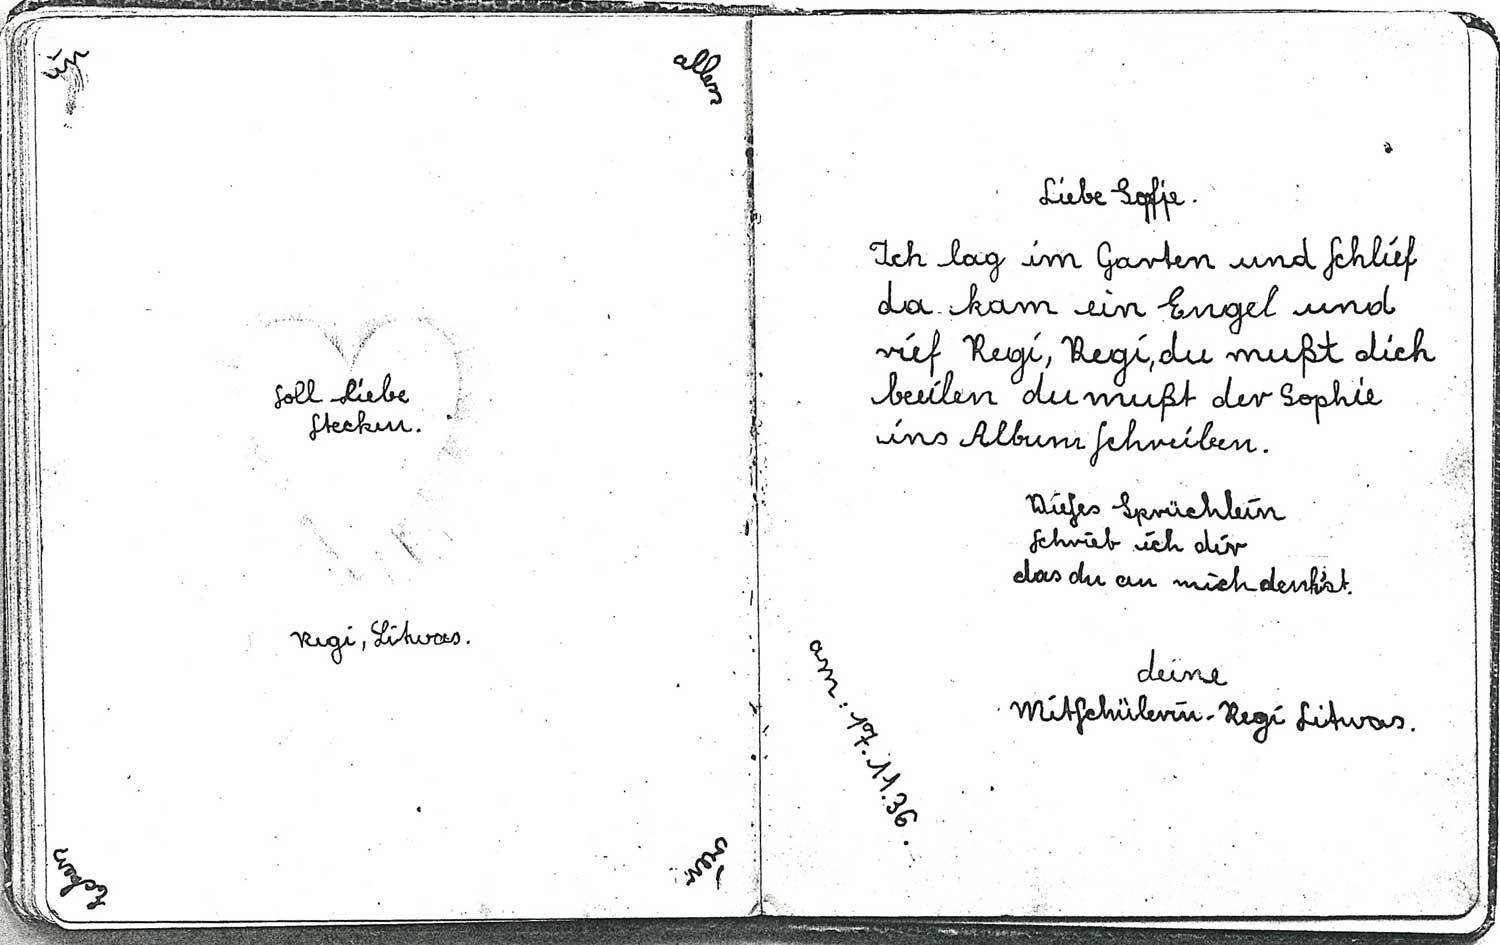 in
allen
vier
Ecken
soll Liebe
stecken.
Regi, Litwas.
Liebe Sofje.
Ich lag im Garten und schlief
da kam ein Engel und
rief Regi, Regi, du mußt dich
beeilen du mußt der Sophie
ins Album schreiben.
Dieses Sprüchlein
schrieb ich dir
das du an mich denkst.
deine
Mitschülerin-Regi Litwas.
am: 17.11.36.